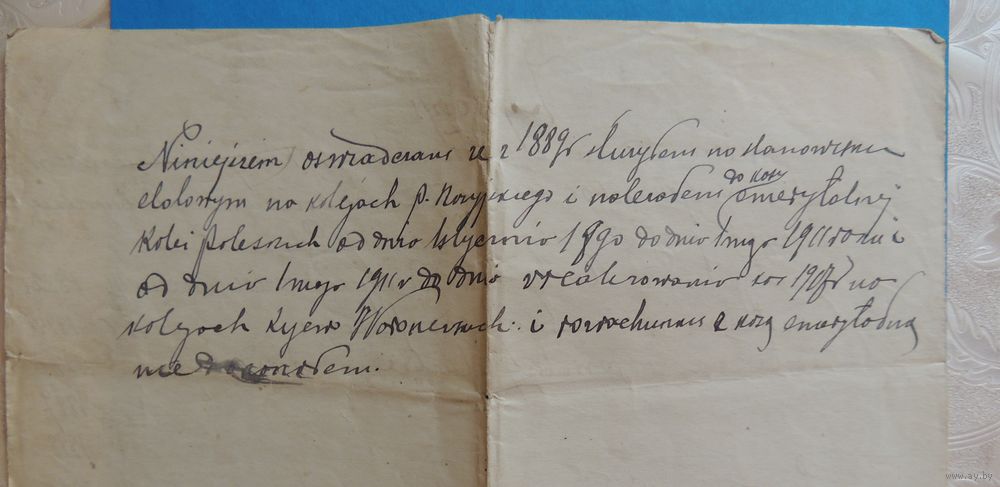 Niniejszem oswiadczam że z 1889 r służyłem na stanowisku
etatowym na kolejach p. Rosyjskiego i należałem do kasy emerytalnej
Kolei Poleskich od dnia 1 stycznia 1890 do dnia 1 maja 1911 roku i
od dnia 1 maja 1911 r do dnia na
kolejach Kijew Woronesk. i rozrachunku z kasą emerytalną
nie
www.ay.by